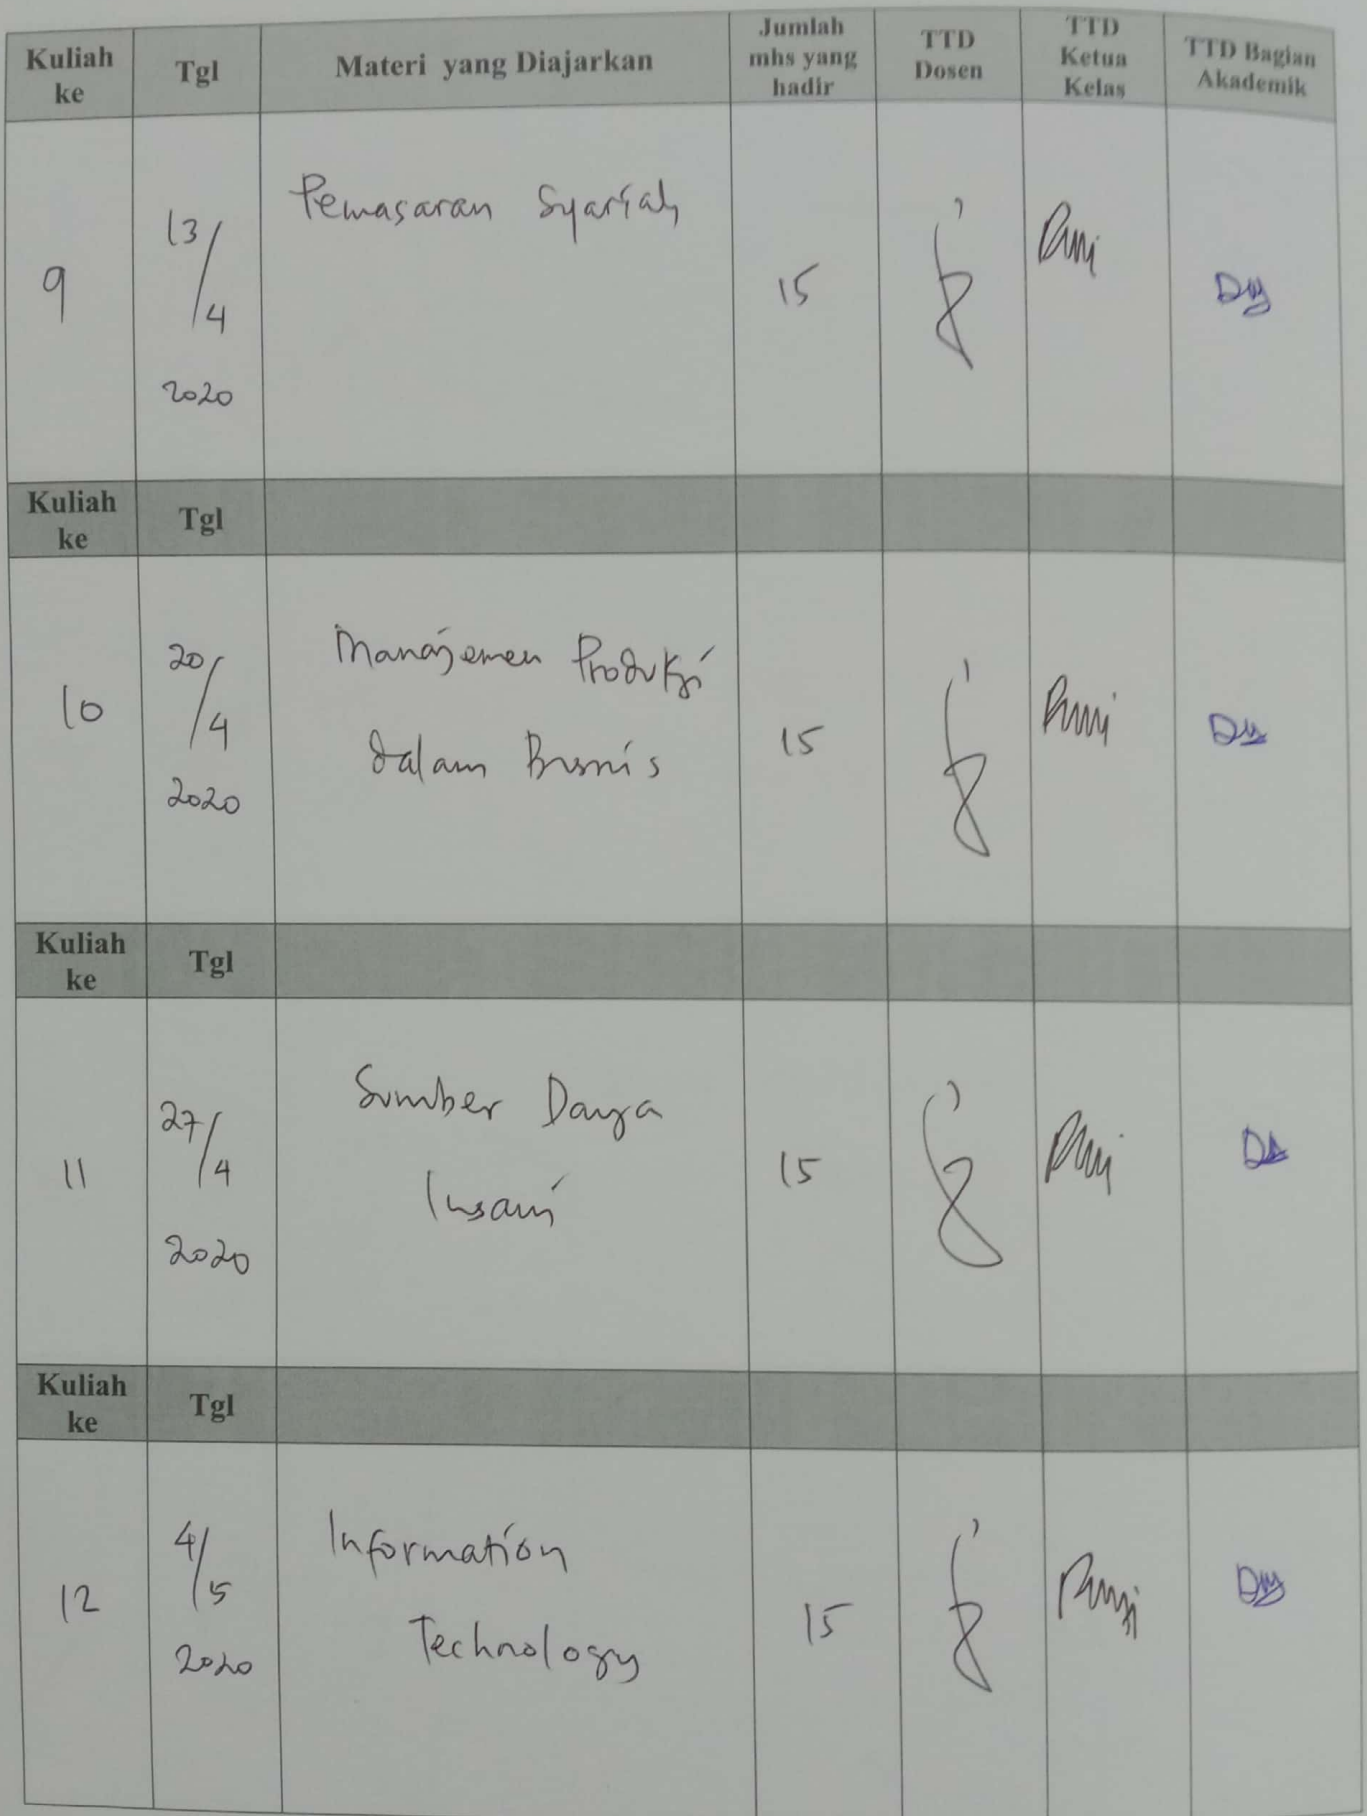 Kuliah ke Tgl Materi yang Diajarkan Jumlah mhs yang hadir TTD Dosen TTD Ketua Kelas TTD Bagian Akademik
9 13/4 2020 Pemasaran Syariah 15
Kuliah ke Tgl
10 20/4 2020 Manajemen Produksi dalam Bisnis 15
Kuliah ke Tgl
11 27/4 2020 Sumber Daya Insani 15
Kuliah ke Tgl
12 4/5 2020 Information Technology 15